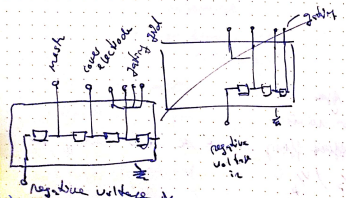 mesh
cover
electrode
gating grid
gating
negative
voltage
in
negative voltage